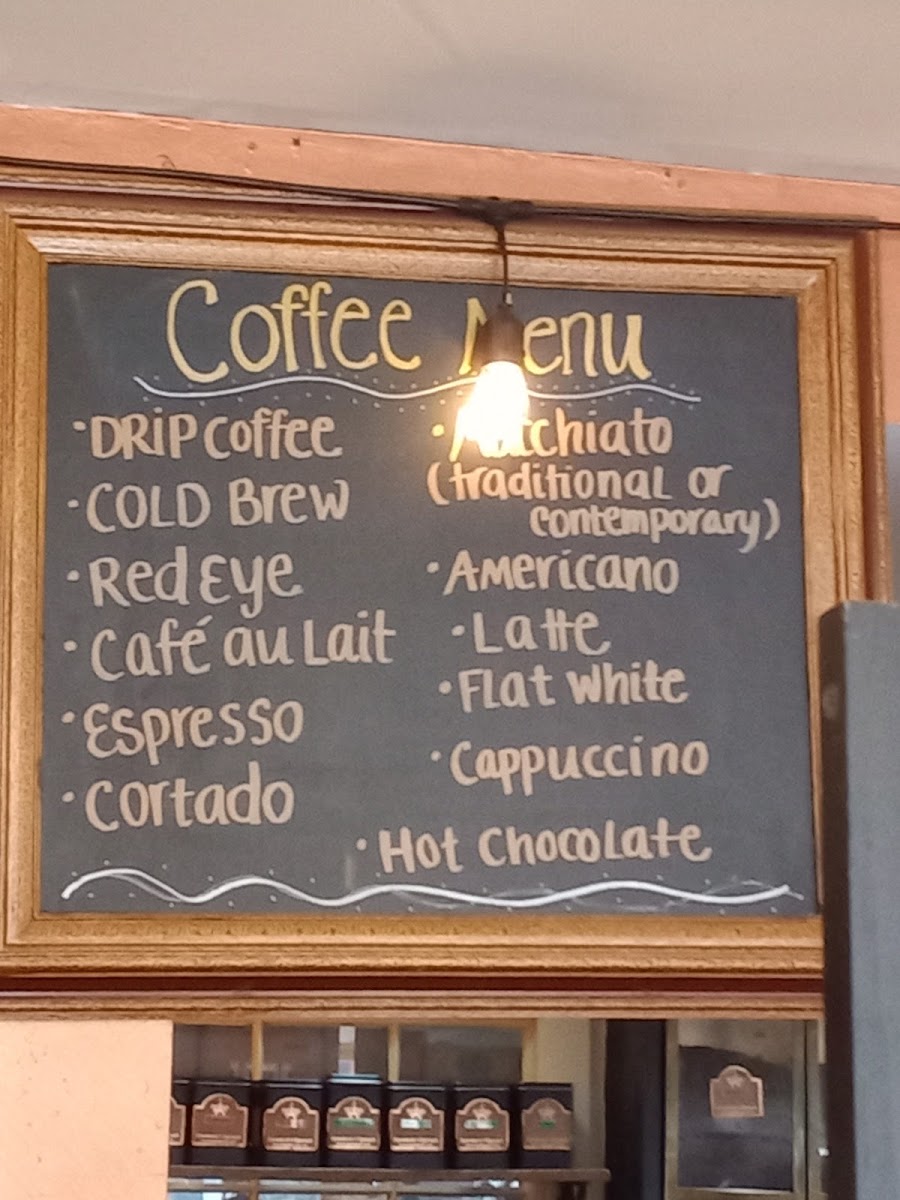 Coffee Menu
·DRiP Coffee
·COLD Brew
·Red Eye
·Café au Lait
·Espresso
·Cortado
·Macchiato
(traditional or
contemporary)
·Americano
·Latte
·Flat White
·Cappuccino
·Hot Chocolate